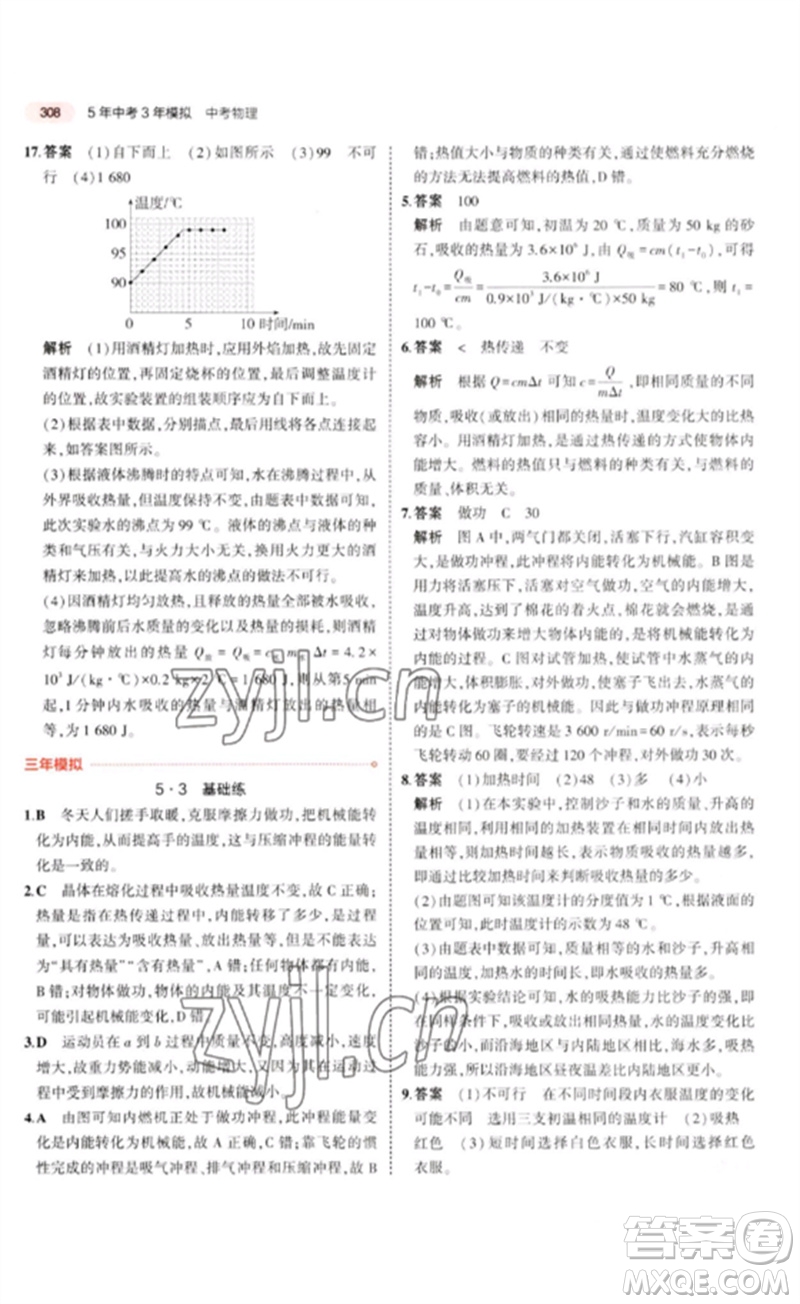 308 5年中考3年模拟 中考物理
17.答案 (1)自下而上 (2)如图所示 (3)99 不可
行 (4)1 680
温度/℃
100
95
90
0 5 10 时间/min
解析 (1)用酒精灯加热时,应用外焰加热,故先固定
酒精灯的位置,再固定烧杯的位置,最后调整温度计
的位置,故实验装置的组装顺序应为自下而上。
(2)根据表中数据,分别描点,最后用线将各点连起
来,如答案图所示。
(3)根据液体沸腾时的特点可知,水在沸腾过程中,从
外界吸收热量,但温度保持不变,由题表中数据可知,
此次实验水的沸点为 99 ℃。液体的沸点与液体的种
类和气压有关,与火力大小无关,换用火力更大的酒
精灯来加热,以此提高水的沸点的做法不可行。
(4)因酒精灯均匀放热,且释放的热量全部被水吸收,
忽略沸腾前后水质量的变化以及热量的损耗,则酒精
灯每分钟放出的热量 Q放=Q吸=c水m水Δt=4.2×
10³ J/(kg·℃)×0.2 kg×2 ℃=1 680 J,则从第5 min
起,1 分钟内水吸收的热量与酒精灯放出的热量相
等,为 1 680 J。
三年模拟
5·3 基础练
1.B 冬天人们搓手取暖,克服摩擦力做功,把机械能转
化为内能,从而提高手的温度,这与压缩冲程的能量转
化是一致的。
2.C 晶体在熔化过程中吸收热量温度不变,故 C 正确;
热量是指在热传递过程中,内能转移了多少,是过程
量,可以说吸收热量、放出热量等,它不是状态量,不能
用“具有热量”“含有热量”,A 错;任何物体都有内能,
B 错;对物体做功,物体的机械能、内能不一定变化,可
能引起机械能变化,D 错。
3.D 运动员在 a 到 b 过程中质量不变,高度减小,速度
增大,故重力势能减小,动能增大,又因为其在运动过
程中受到摩擦力的作用,故机械能变小。
4.A 由图可知内燃机正处于做功冲程,此过程能量变
化是内能转化为机械能,故 A 正确,C 错;靠飞轮的惯
性完成的冲程是吸气冲程、排气冲程和压缩冲程,故 B
错;热值大小与物质的种类有关,因此使燃料充分燃烧
的方法无法提高燃料的热值,D 错。
5.答案 100
解析 由题意可知,初温为 20 ℃,质量为 50 kg 的砂
石,吸收的热量为 3.6×10⁶ J,由 Q吸=cm(t₁-t₀),可得
t₁-t₀=Q吸/cm=3.6×10⁶ J/0.9×10³ J/(kg·℃)×50 kg=80 ℃,则 t₁=
100 ℃。
6.答案 < 热传递 不变
解析 根据 Q=cmΔt 可知 c=Q/mΔt,即相同质量的不同
物质,吸收(或放出)相同的热量时,温度变化大的比热
容小。用酒精灯加热,是通过热传递的方式使物体内
能增大。燃料的热值只与燃料的种类有关,与燃料的
质量、体积无关。
7.答案 做功 C 30
解析 图 A 中,两气门都关闭,活塞下行,汽缸容积变
大,是做功冲程,此冲程将内能转化为机械能。B 图是
用力将活塞压下,活塞对空气做功,空气的内能增大,
温度升高,达到了棉花的着火点,棉花就会燃烧,是通
过对物体做功来增大物体内能的,是将机械能转化为
内能的过程。C 图对试管加热,使试管中水蒸气的内
能增大,体积膨胀,对外做功,使塞子飞出去,水蒸气的
内能转化为塞子的机械能。故与做功冲程原理相同
的是 C 图。飞轮转速是 3 600 r/min=60 r/s,则每秒
飞轮转动 60 圈,要经过 120 个冲程,对外做功 30 次。
8.答案 (1)加热时间 (2)48 (3)多 (4)小
解析 (1)在本实验中,控制沙子和水的质量、升高的
温度相同,利用相同的加热装置在相同时间内放出热
量相同,加热时间越长,表示物质吸收的热量越多,故
是通过加热时间来判断吸收热量多少的。
(2)由题图可知该温度计的分度值为 1 ℃,根据液面的
位置可知,此时温度计的示数为 48 ℃。
(3)由题表中数据可知,质量相等的水和沙子,升高相
同的温度,加热水的时间长,即水吸收的热量多。
(4)根据实验结论可知,水的吸热能力比沙子的强,即
在同样条件下,吸收或放出相同的热量,水的温度变化
比沙子小,而沿海地区与内陆地区相比有更多的水,水
吸热能力强,所以沿海地区昼夜温差比内陆地区更小。
9.答案 (1)不可行 在不同时间段内衣服温度的变化
可能不同 选用三支初温相同的温度计 (2)吸热
红色 (3)短时间选择白色衣服,长时间选择红色
衣服。
zyjl.cn
zyjl.cn
答案圈
MXQE.COM